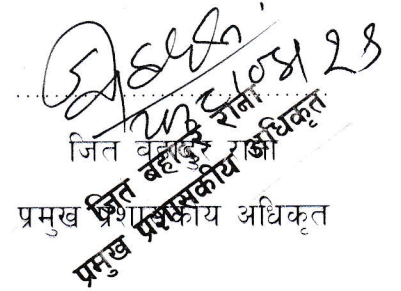 जित वहादुर राना
प्रमुख प्रशासकीय अधिकृत
जित बहादुर राना
प्रमुख प्रशासकीय अधिकृत